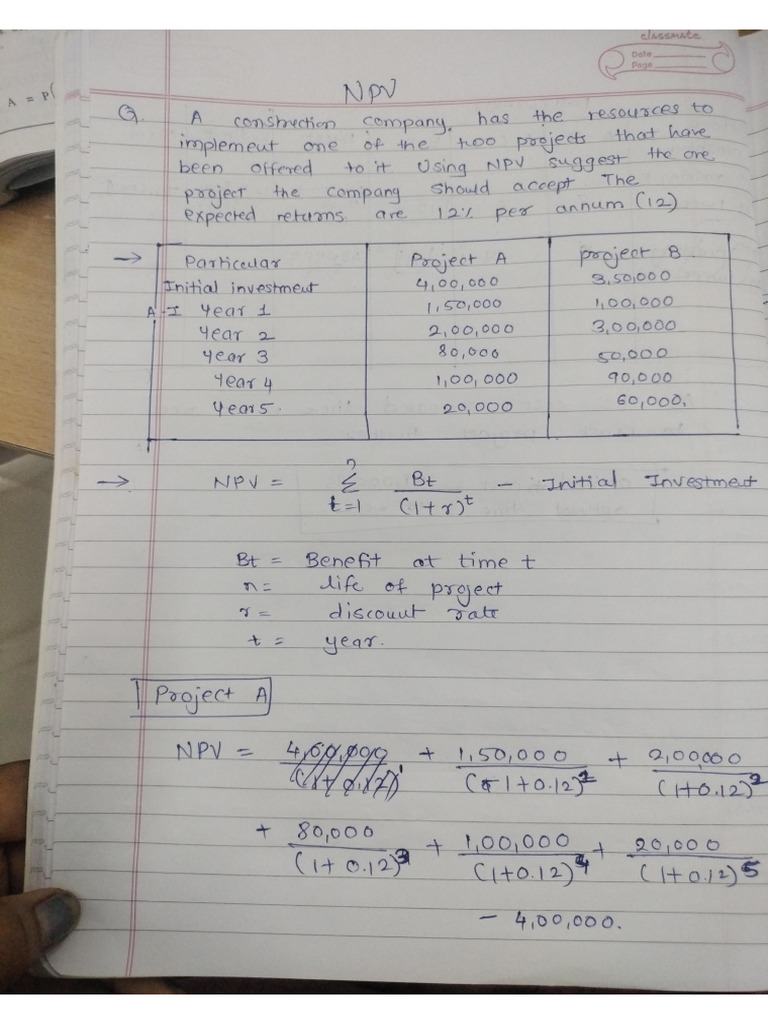 classmate
Date
Page
A = P(
NPV
Q. A construction company, has the resources to
implement one of the two projects that have
been offered to it Using NPV suggest the one
project the company should accept The
expected returns are 12% per annum (12)
→ Particular Project A project B
Initial investment 4,00,000 3,50,000
A-I Year 1 1,50,000 1,00,000
Year 2 2,00,000 3,00,000
Year 3 80,000 50,000
Year 4 1,00,000 90,000
Year 5. 20,000 60,000.
→ NPV = n Σ t=1 Bt / (1+r)^t - Initial Investment
Bt = Benefit at time t
n = life of project
r = discount rate
t = year.
Project A
NPV = 4,00,000 / (1+0.12)^1 + 1,50,000 / (1+0.12)^1 + 2,00,000 / (1+0.12)^2
+ 80,000 / (1+0.12)^3 + 1,00,000 / (1+0.12)^4 + 20,000 / (1+0.12)^5
- 4,00,000.